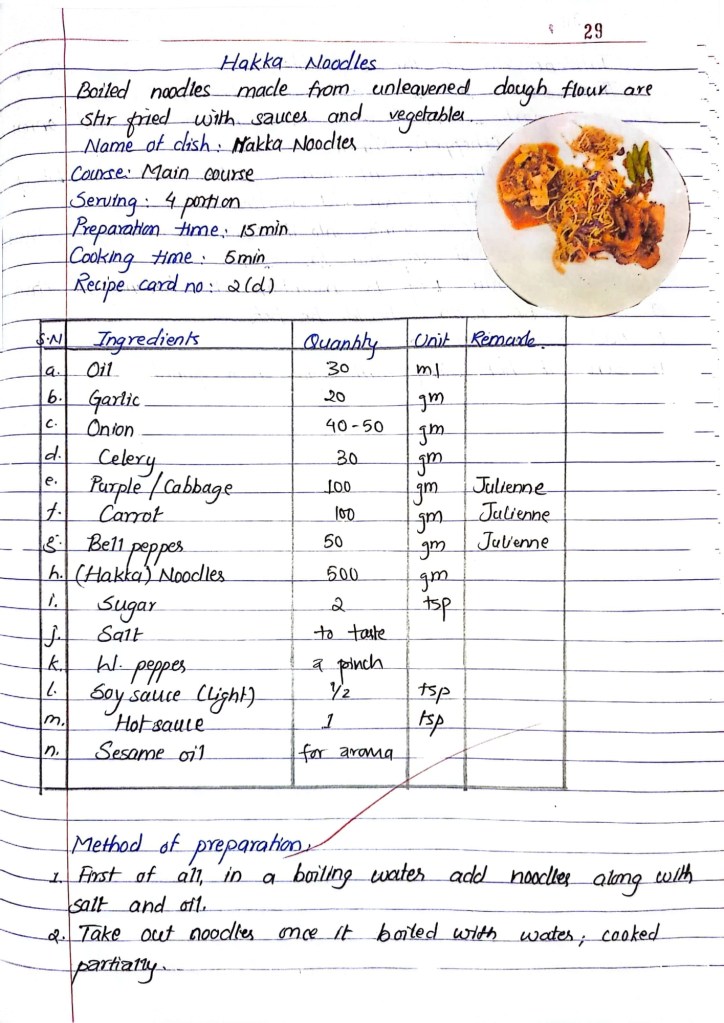 29
Hakka Noodles
Boiled noodles made from unleavened dough flour are
stir fried with sauces and vegetables.
Name of dish: Hakka Noodles
Course: Main course
Serving: 4 portion
Preparation time: 15 min
Cooking time: 5 min
Recipe card no: 2(d)
S.N Ingredients Quantity Unit Remark
a. Oil 30 ml
b. Garlic 20 gm
c. Onion 40-50 gm
d. Celery 30 gm
e. Purple/Cabbage 100 gm Julienne
f. Carrot 100 gm Julienne
g. Bell pepper 50 gm Julienne
h. (Hakka) Noodles 500 gm
i. Sugar 2 tsp
j. Salt to taste
k. W. pepper a pinch
l. Soy sauce (Light) 1/2 tsp
m. Hot sauce 1 tsp
n. Sesame oil for aroma
Method of preparation:
1. First of all, in a boiling water add noodles along with
salt and oil.
2. Take out noodles once it boiled with water; cooked
partially.